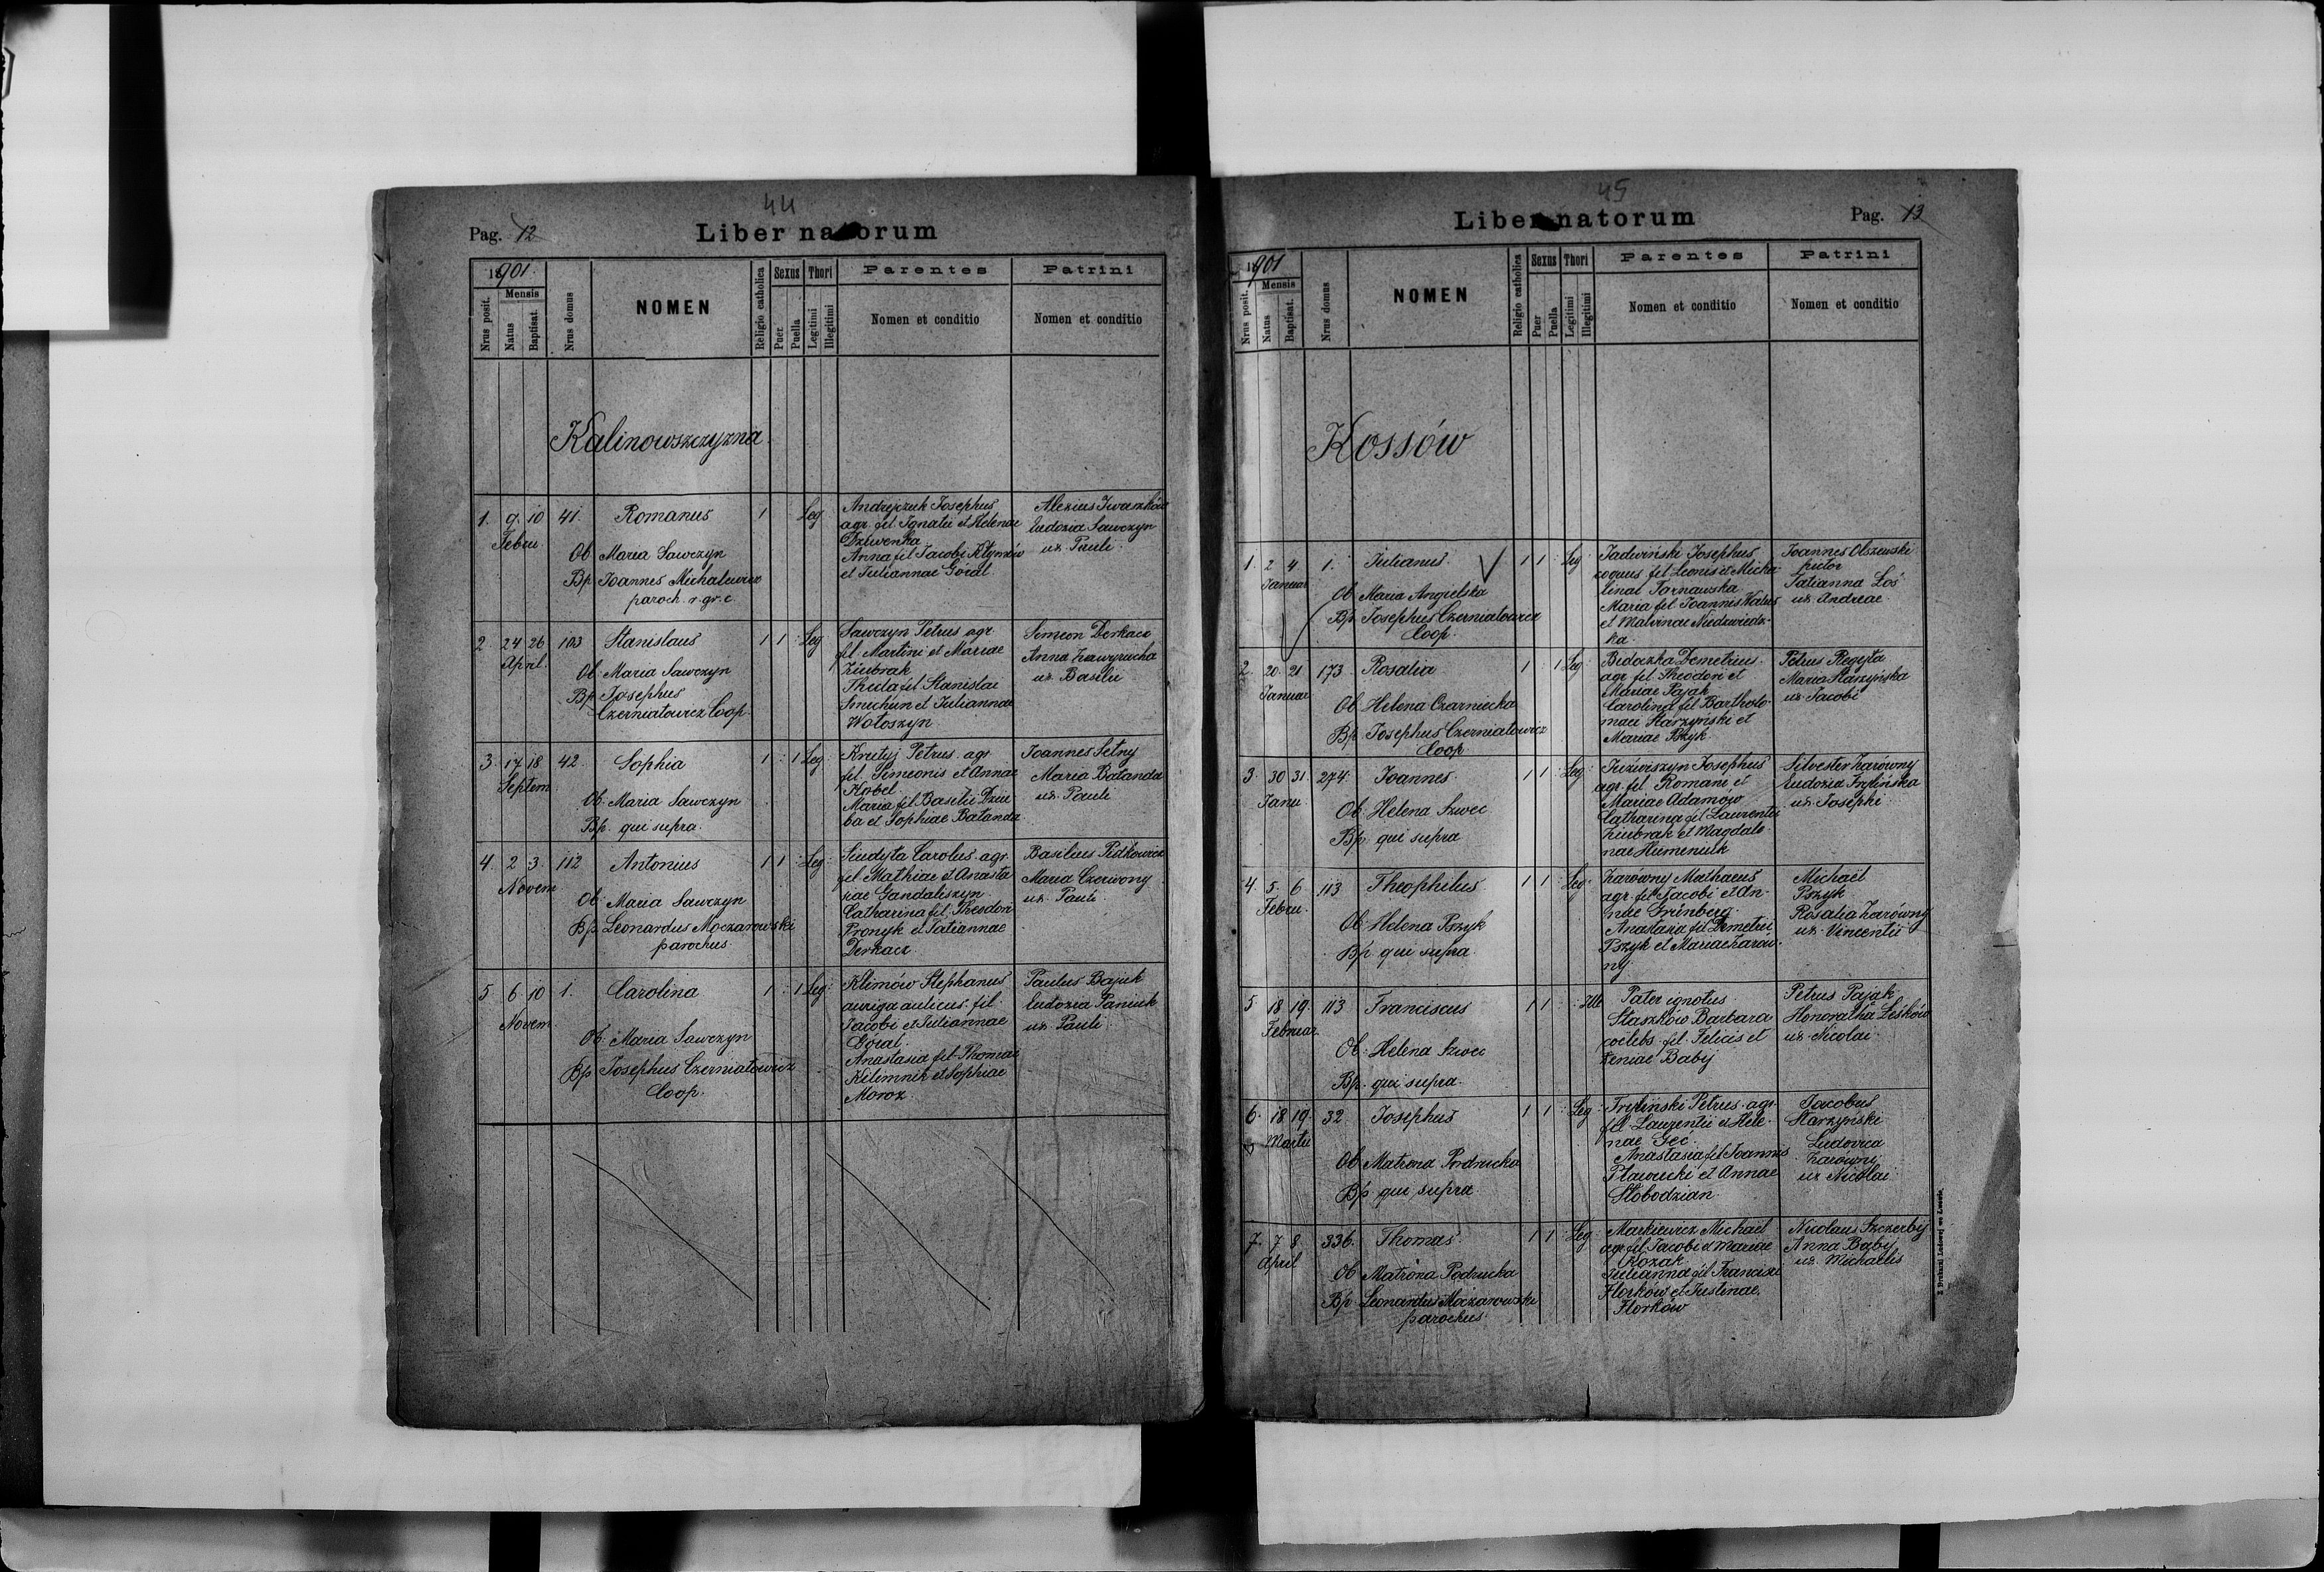 44
Pag. 12
Liber natorum
1901.
Nrus posit.
Mensis
Natus
Baptisat.
Nrus domus
NOMEN
Religio catholica
Sexus
Puer
Puella
Thori
Legitimi
Illegitimi
Parentes
Nomen et conditio
Patrini
Nomen et conditio
Kalinowszczyzna
1. 9. 10 41. Romanus 1 Leg.
Febru.
Ob. Maria Sawczyn
Bp. Joannes Michalewicz
paroch. r. gr. c.
Andrejczuk Josephus
agr. fil. Ignatii et Helenae
Dziwenka
Anna fil. Jacobi Klymów
et Juliannae Góral.
Alexius Iwaszków
Eudoxia Sawczyn
ux. Pauli.
2. 24 26 103 Stanislaus 1 1 Leg
April.
Ob. Maria Sawczyn
Bp. Josephus
Czerniatowicz Coop.
Sawczyn Petrus agr.
fil. Martini et Mariae
Ziubrak
Thecla fil. Stanislai
Smichun et Juliannae
Wołoszyn.
Simeon Derkacz
Anna Zawyrucha
ux. Basilii
3. 17 18 42. Sophia 1 1 Leg
Septem
Ob. Maria Sawczyn
Bp. qui supra.
Krutyj Petrus agr
fil. Simeonis et Annae
Kobel.
Maria fil. Basilii Dziu
ba et Sophiae Batanda
Joannes Setny
Maria Batanda
ux. Pauli
4. 2 3. 112 Antonius 1 1 Leg.
Novem
Ob. Maria Sawczyn
Bp. Leonardus Moczarowski
parochus
Siudyta Carolus agr.
fil. Mathiae et Anasta
siae Gandaliszyn
Catharina fil. Theodori
Pronyk et Tatiannae
Derkacz.
Basilius Pidkowicz
Maria Czerwony
ux. Pauli.
5. 6 10 1. Carolina 1 1 Leg.
Novem
Ob. Maria Sawczyn
Bp. Josephus Czerniatowicz
Coop.
Klimów Stephanus
auriga aulicus. fil.
Jacobi et Juliannae
Góral.
Anastasia fil. Thomae
Kilimnik et Sophiae
Moroz.
Paulus Bajuk
Eudoxia Paniuk
ux. Pauli
45
Liber natorum
Pag. 13
1901
Nrus posit.
Mensis
Natus
Baptisat.
Nrus domus
NOMEN
Religio catholica
Sexus
Puer
Puella
Thori
Legitimi
Illegitimi
Parentes
Nomen et conditio
Patrini
Nomen et conditio
Kossów
1. 2 4 1. Julianus. 1 1 Leg.
Januar
Ob. Maria Angielska
Bp. Josephus Czerniatowicz
Coop.
Jadwiński Josephus
coquus fil. Leonis et Micha
linae Tarnawska
Maria fil. Joannis
et Malvinae Niedzwiedz-
ka.
Joannes Olszewski
pictor
Tatianna Łoś
ux. Andreae.
2. 20. 21 173 Rosalia 1 1 Leg
Januar
Ob. Helena Czarniecka
Bp. Josephus Czerniatowicz
Coop.
Bidaczka Demetrius
agr. fil. Theodori et
Mariae Pająk
Carolina fil. Bartholo-
maei Starzyński et
Mariae Pszyk.
Petrus Regeyta
Maria Starzyńska
ux. Jacobi
3. 30 31. 274. Joannes 1 1 Leg.
Janu.
Ob. Helena Szwec
Bp. qui supra
Juzwiszyn Josephus
agr. fil. Romani et
Mariae Adamów
Catharina fil. Laurentii
Ziubrak et Magdale-
nae Humeniuk
Silvester Zarówny
Eudoxia Trylińska
ux. Josephi
4. 5. 6 113 Theophilus 1 1 Leg.
Febru.
Ob. Helena Pszyk
Bp. qui supra.
Zarówny Mathaeus
agr. fil. Jacobi et An-
nae Grünberg.
Anastasia fil. Demetrii
Pszyk et Mariae Zarów-
ny.
Michael
Pszyk
Rosalia Zarówny
ux. Vincentii
5. 18 19. 113 Franciscus 1 1 Ille
Februar.
Ob. Helena Szwec
Bp. qui supra.
Pater ignotus
Staszków Barbara
coelebs. fil. Felicis et
Xeniae Babij
Petrus Pająk
Honoratha Leśków
ux. Nicolai.
6. 18 19. 32. Josephus 1 1 Leg.
Martii
Ob. Matrona Podrucka
Bp. qui supra.
Tryliński Petrus agr.
fil. Laurentii et Hele-
nae Geć.
Anastasia fil. Joannis
Pławucki et Annae
Słobodzian.
Jacobus
Starzyński
Ludovica
Zarówny
ux. Nicolai
7. 7 8 336. Thomas 1 1 Leg.
April
Ob. Matrona Podrucka
Bp. Leonardus Moczarowski
parochus
Markiewicz Michael
agr. fil. Jacobi et Mariae
Kozak
Julianna fil. Francisci
Florków et Justinae
Florków
Nicolaus Szczerbij
Anna Babij
ux. Michaelis
Z Drukarni Ludowej we Lwowie.